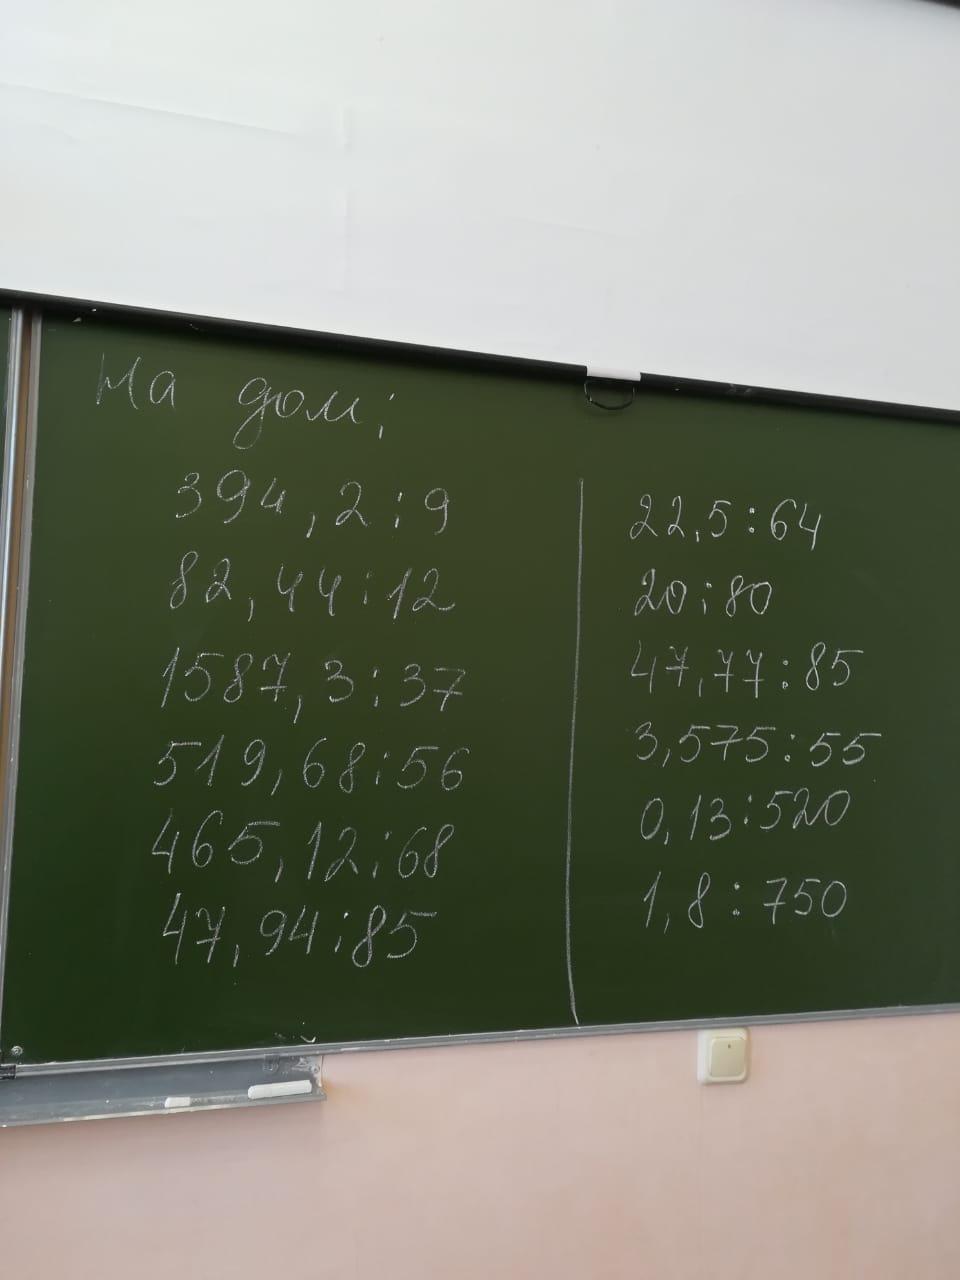 На дом;
394,2:9
82,44:12
1587,3:37
519,68:56
465,12:68
47,94:85
22,5:64
20:80
47,77:85
3,575:55
0,13:520
1,8:750